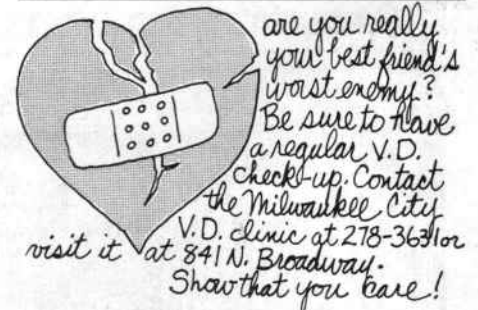 are you really
your best friend's
worst enemy?
Be sure to have
a regular V.D.
check-up. Contact
the Milwaukee City
V.D. clinic at 278-3631 or
visit it at 841 N. Broadway.
Show that you care!